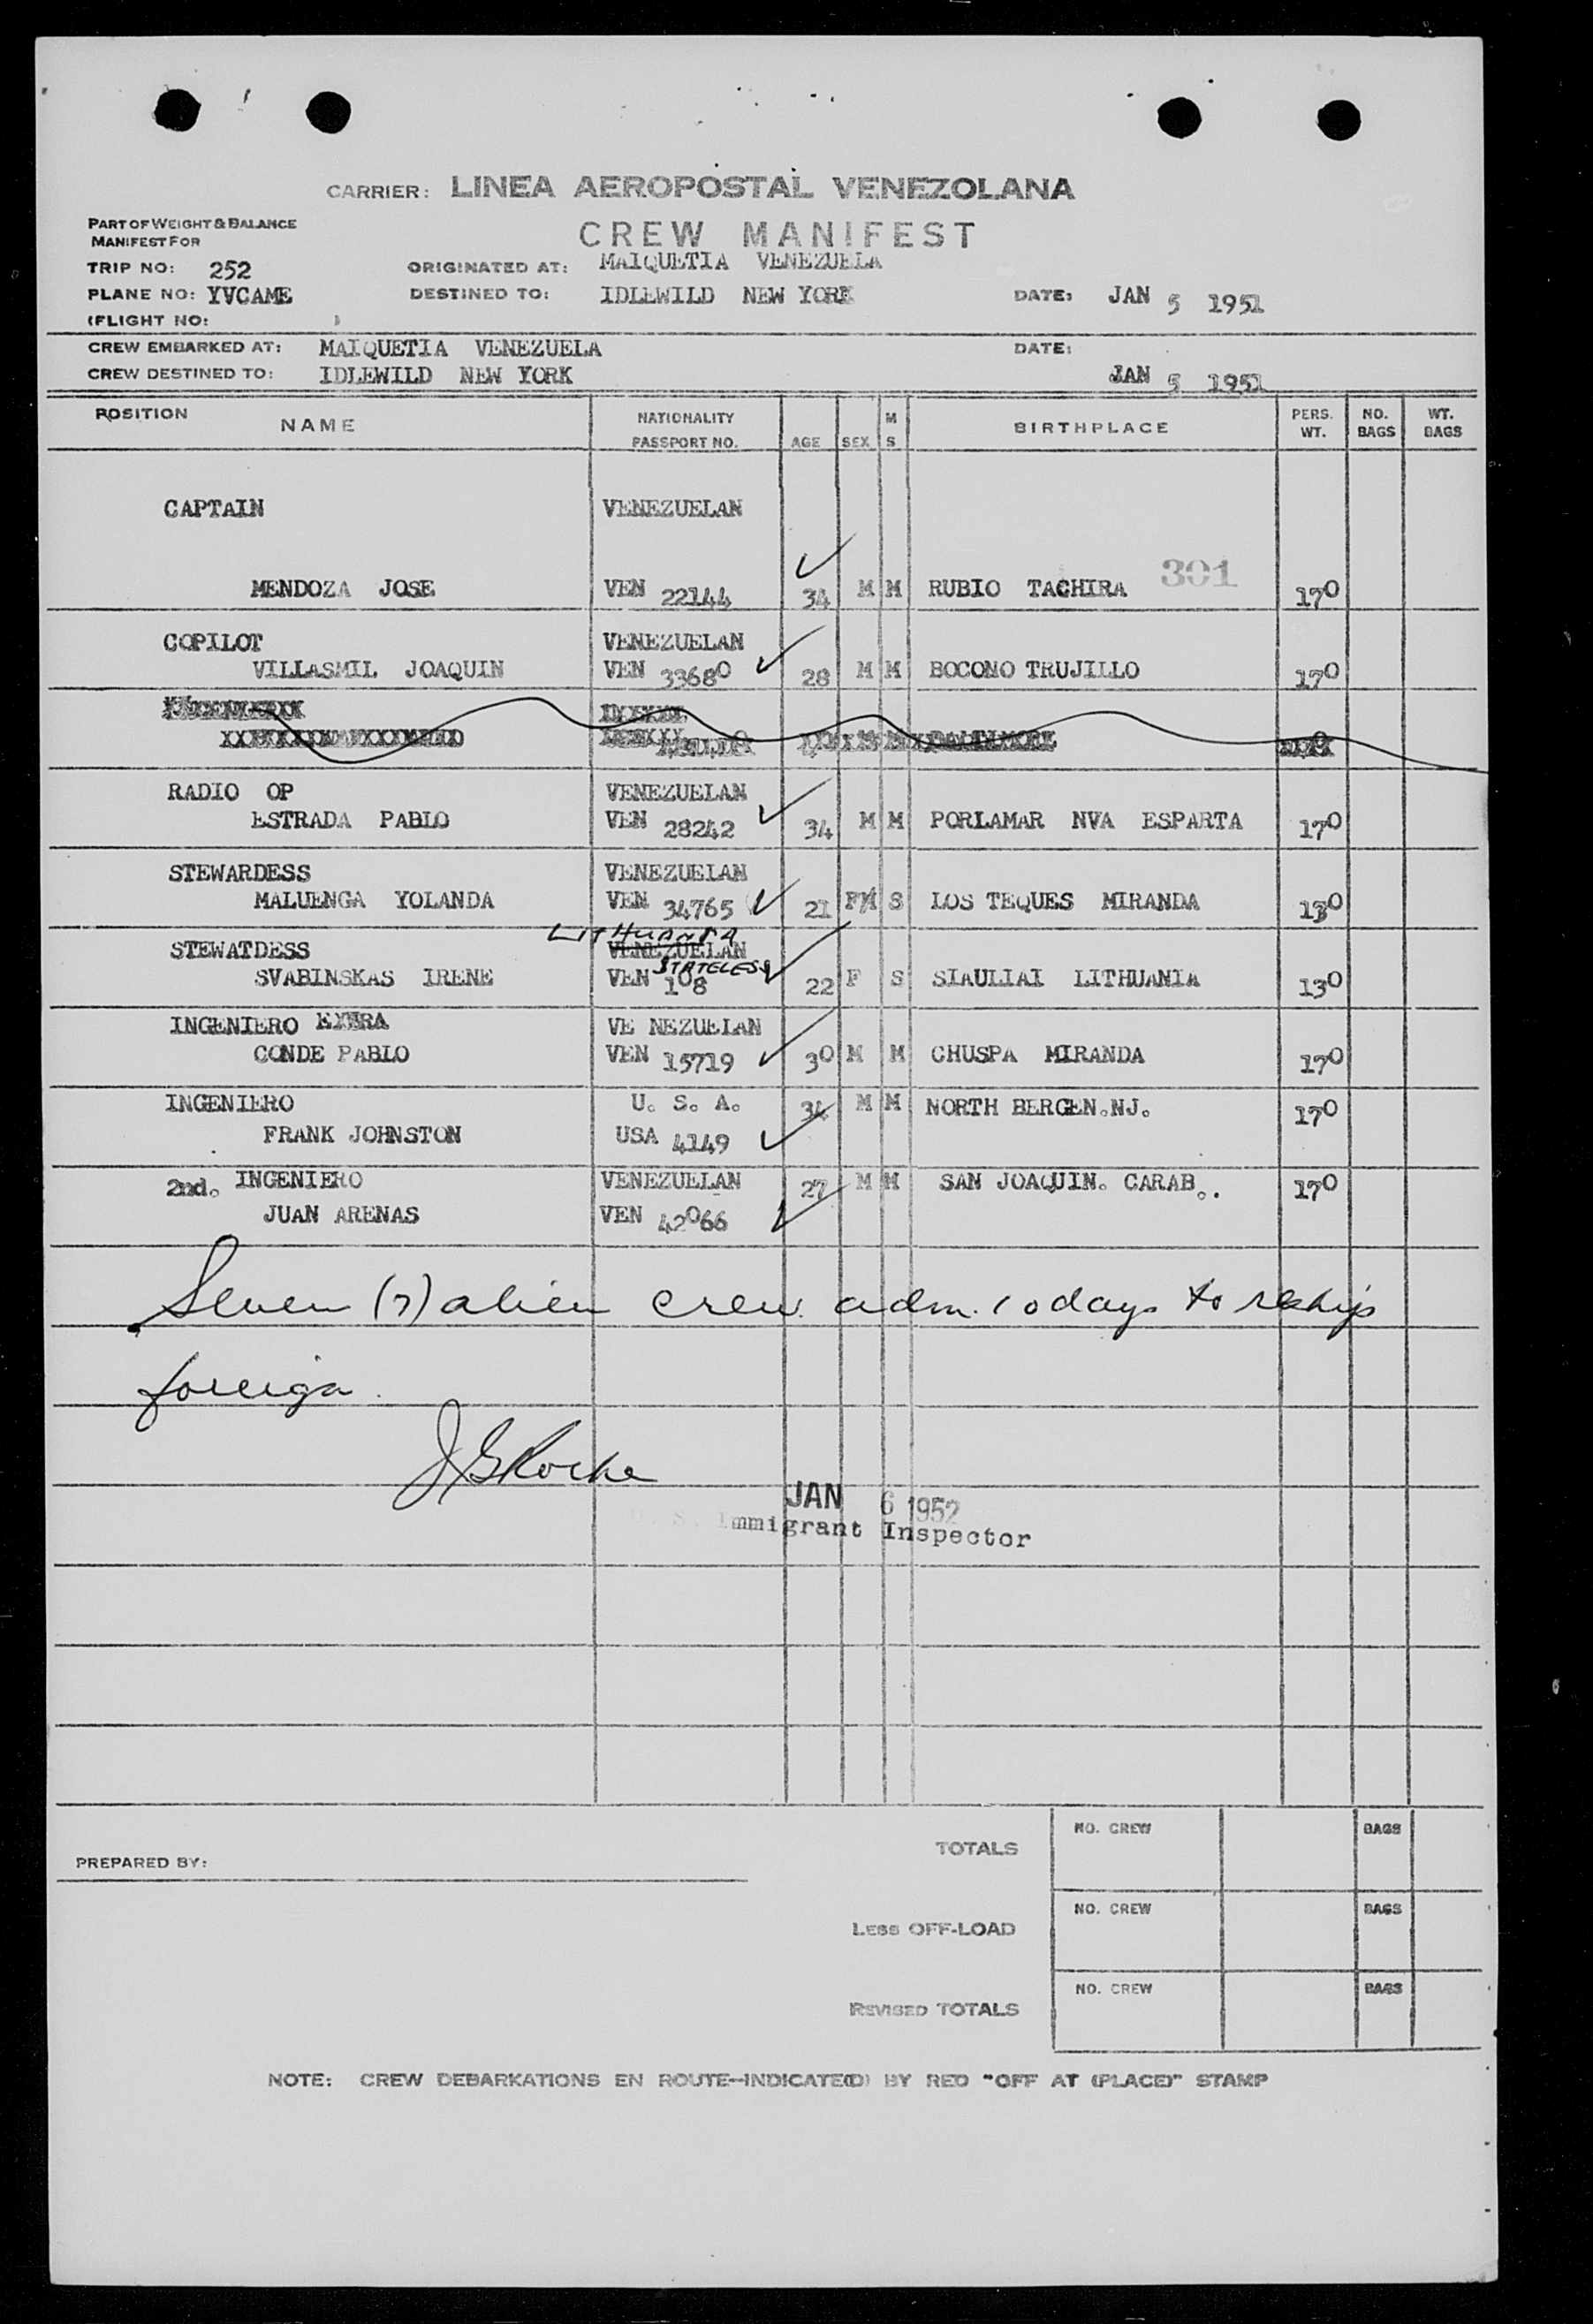 CARRIER: LINEA AEROPOSTAL VENEZOLANA
PART OF WEIGHT & BALANCE
MANIFEST FOR
CREW MANIFEST
TRIP NO: 252 ORIGINATED AT: MAIQUETIA VENEZUELA
PLANE NO: YVCAME DESTINED TO: IDLEWILD NEW YORK DATE: JAN 5 1951
(FLIGHT NO: )
CREW EMBARKED AT: MAIQUETIA VENEZUELA DATE:
CREW DESTINED TO: IDLEWILD NEW YORK JAN 5 1951
POSITION NAME NATIONALITY PASSPORT NO. AGE SEX M S BIRTHPLACE PERS. WT. NO. BAGS WT. BAGS
CAPTAIN VENEZUELAN
301
MENDOZA JOSE VEN 22144 34 M M RUBIO TACHIRA 170
COPILOT VENEZUELAN
VILLASMIL JOAQUIN VEN 33680 28 M M BOCONO TRUJILLO 170
RADIO OP VENEZUELAN
ESTRADA PABLO VEN 28242 34 M M PORLAMAR NVA ESPARTA 170
STEWARDESS VENEZUELAN
MALUENGA YOLANDA VEN 34765 21 F M S LOS TEQUES MIRANDA 130
LITHUANIA
STEWATDESS VENEZUELAN
STATELESS
SVABINSKAS IRENE VEN 108 22 F S SIAULIAI LITHUANIA 130
INGENIERO EXTRA VE NEZUELAN
CONDE PABLO VEN 15719 30 M M CHUSPA MIRANDA 170
INGENIERO U. S. A. 34 M M NORTH BERGEN.NJ. 170
FRANK JOHNSTON USA 4149
2nd. INGENIERO VENEZUELAN 27 M M SAN JOAQUIN. CARAB.. 170
JUAN ARENAS VEN 42066
Seven (7) alien crew adm. 10 days to reship
foreign.
J G Roche
JAN 6 1952
U. S. Immigrant Inspector
PREPARED BY:
TOTALS NO. CREW BAGS
LESS OFF-LOAD NO. CREW BAGS
REVISED TOTALS NO. CREW BAGS
NOTE: CREW DEBARKATIONS EN ROUTE—INDICATE(D) BY RED "OFF AT (PLACE)" STAMP